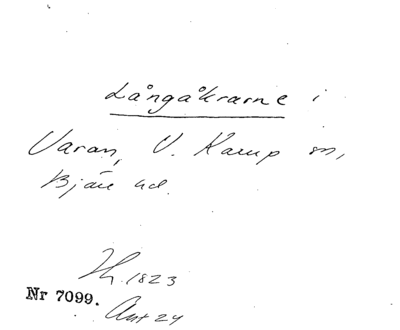 Långåkrarne i
Varan, V. Karup sn,
Bjäre hd.
Th. 1823
Nr 7099.
Ant 24